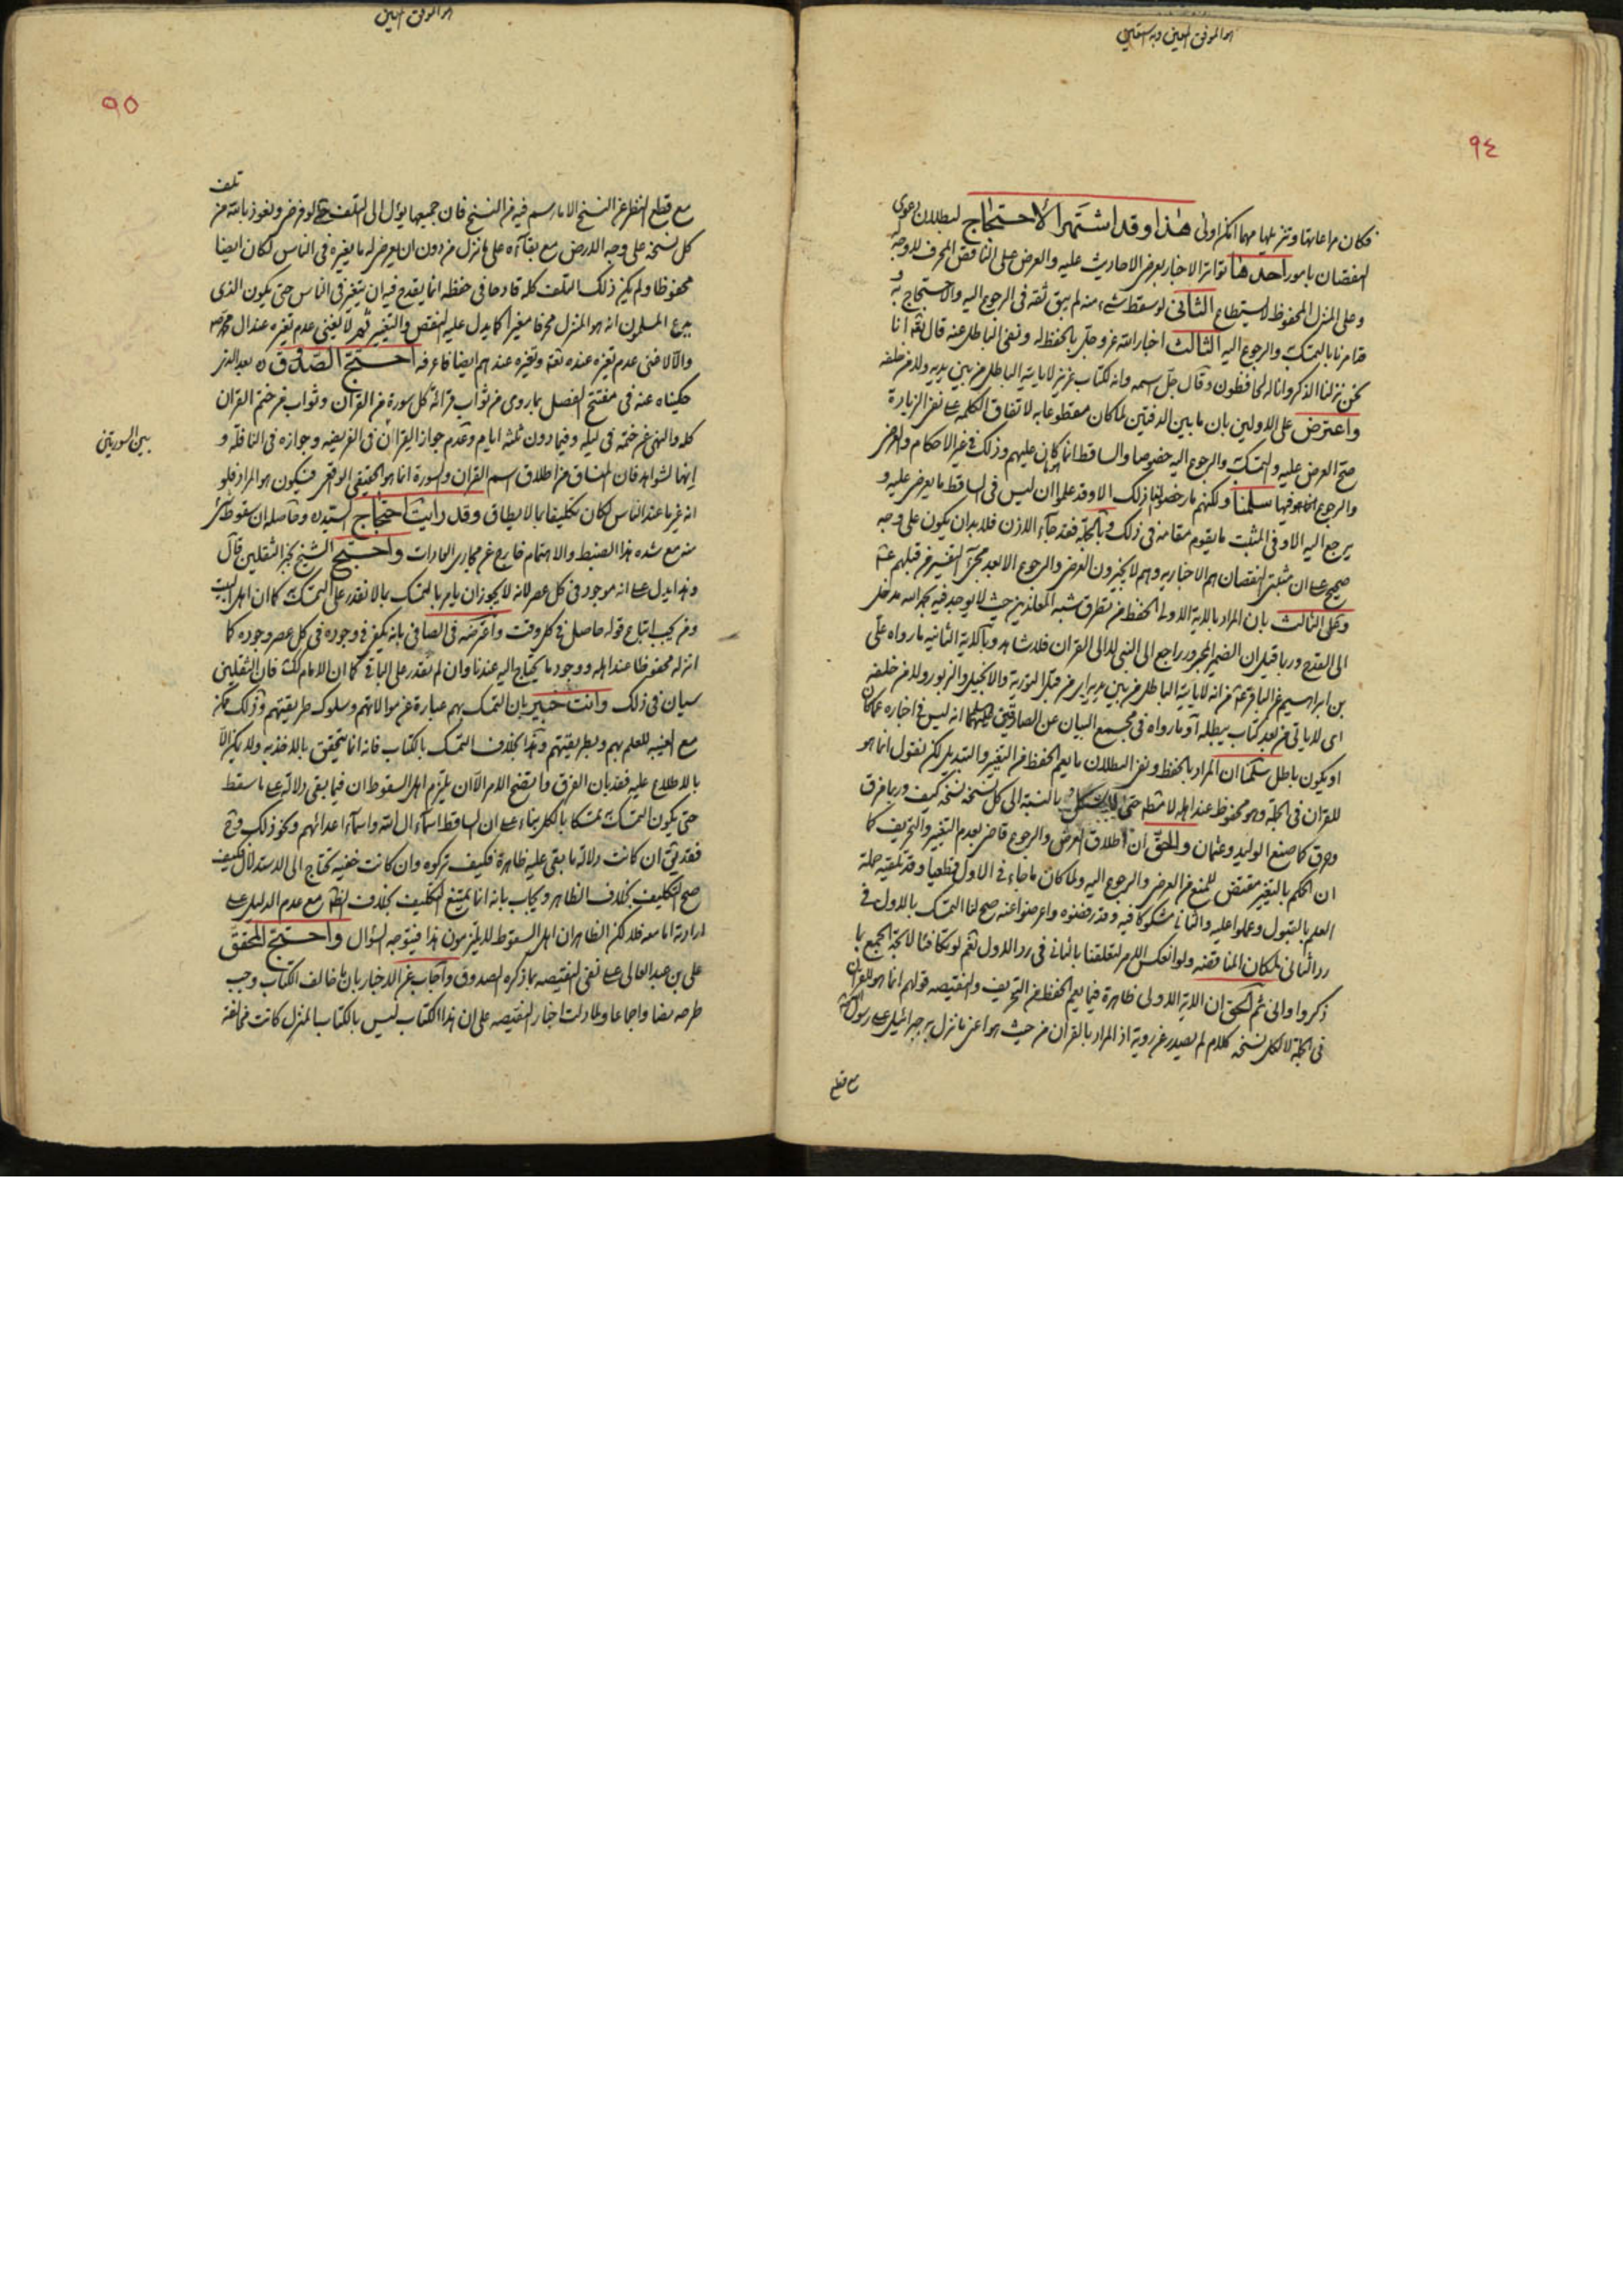 هو الموفق المعين وبه نستعين
٩٤
فكان مراعاتها وتنزيلها مهما امكن اولى هذا وقد اشتهر الاحتجاج لبطلان دعوى
النقصان بامور احدها تواتر الاخبار بعرض الاحاديث عليه والعرض على الناقص المحرف لا وجه له
وعلى المنزل المحفوظ لا يستطاع الثاني لو سقط شيء منه لم يبق ثقة في الرجوع اليه والاحتجاج به و
قد امرنا بالتمسك والرجوع اليه الثالث اخبار الله عز وجل بالحفظ له ونفي الباطل عنه قال تعالى انا
نحن نزلنا الذكر وانا له لحافظون وقال جل اسمه وانه لكتاب عزيز لا ياتيه الباطل من بين يديه ولا من خلفه
واعترض على الاولين بان ما بين الدفتين لما كان مقطوعا به لاتفاق الكلمة على نفي الزيادة
صح العرض عليه والتمسك والرجوع اليه خصوصا والساقط انما كان عليهم وذلك في غير الاحكام والعرض
والرجوع انما هو فيها سلمنا ولكنهم ما رخصوا لنا ذلك الا وقد علموا ان ليس في الساقط ما يعرض عليه و
يرجع اليه الا وفي المثبت ما يقوم مقامه في ذلك وبالجملة فقد جاء الاذن فلا بد ان يكون على وجه
صحيح على ان مثبتي النقصان هم الاخباريه وهم لا يجيزون العرض والرجوع الا بعد مجيء التفسير من قبلهم ع
وعلى الثالث بان المراد بالاية الاولى الحفظ من تطرق شبه المعاندين حيث لا يوجد فيه بحمد الله مدخل
الى القدح وربما قيل ان الضمير المجرور راجع الى النبي لا الى القران فلا شاهد وبالاية الثانيه ما رواه علي
بن ابراهيم عن الباقر ع من انه لا ياتيه الباطل من بين يديه اي من قبل التورية والانجيل والزبور ولا من خلفه
اي لا ياتي من بعد كتاب يبطله او ما رواه في مجمع البيان عن الصادقين عليهما انه ليس في اخباره عما كان
او يكون باطل سلمنا ان المراد بالحفظ ونفي البطلان ما يعم الحفظ من التغيير والتبديل لكن نقول انما هو
للقران في الجملة وهو محفوظ عند اهله لا مثله حتى بالنسبة الى كل نسخه نسخه كيف وربما مزق
وحرق كما صنع الوليد وعثمان والحق ان اطلاق العرض والرجوع قاض بعدم التغيير والتحريف كما
ان الحكم بالتغيير مقتض للمنع من العرض والرجوع اليه ولما كان ما جاء في الاول قطعيا وقد تلقته حملة
العلم بالقبول وعملوا عليه والثاني مشكوكا فيه وقد رفضوه واعرضوا عنه صح لنا التمسك بالاول في
رد الثاني لمكان المناقضه ولو انعكس الامر لتعلقنا بالثاني في رد الاول نعم لو تكافئا لاتجه الجمع بما
ذكروا وانى ثم الحق ان الاية الاولى ظاهرة فيما يعم الحفظ من التحريف والنقيصه قولهم انما هو للقران
في الجملة لا لكل نسخه كلام لم يصدر عن روية اذ المراد بالقران من حيث هو اعني ما نزل به جبرائيل على رسول الله
مع قطع
هو الموفق المعين
٩٥
تلف
مع قطع النظر عن النسخ الا ما رسم فيه من النسخ فان جميعها يؤل الى التلف حتى لو فرض ونعوذ بالله من
كل نسخة على وجه الارض مع بقاءه على ما نزل من دون ان يعرض له ما يغيره في الناس لكان ايضا
محفوظا ولم يكن ذلك التلف كله قادحا في حفظه انما يقدح فيه ان يتغير في الناس حتى يكون الذي
بيد المسلمون انه هو المنزل محرفا مغيرا كما يدل عليه النقص والتغيير ثم لا يغني عدم تغيره عند ال محمد ص
والا لاغنى عدم تغيره عنده تعالى وتغيره عندهم ايضا فاعرفه احتج الصدوق ره بعد الذي
حكيناه عنه في مفتتح الفصل بما روي من ثواب قرائة كل سورة من القران وثواب من ختم القران
كله والنهي عن ختمه في ليله وفيما دون ثلثة ايام وعدم جواز القران في الفريضه وجوازه في النافلة و
بين السورتين
انها لشواهد فان المنساق من اطلاق اسم القران والسورة انما هو الحقيقي الواقعي فيكون هو المراد فلو
انه غير ما عند الناس لكان تكليفا بما لا يطاق وقد رايت احتجاج السيد ره وحاصله ان سقوط شيء
منه مع شده هذا الضبط والاهتمام خارج عن مجاري العادات واحتج الشيخ بخبر الثقلين قال
وهذا يدل على انه موجود في كل عصر لانه لا يجوز ان يامر بالتمسك بما لا نقدر على التمسك كما ان اهل البيت
ومن يجب اتباع قوله حاصل في كل وقت واعترضه في الصافي بانه يكفي في وجوده في كل عصر وجوده كما
انزله محفوظا عند اهله ووجود ما يحتاج اليه عندنا وان لم نقدر على الباقي كما ان الامام كك فان الثقلين
سيان في ذلك وانت خبير بان التمسك بهم عبارة عن موالاتهم وسلوك طريقتهم وذلك ممكن
مع الغيبه للعلم بهم وبطريقتهم وهذا بخلاف التمسك بالكتاب فانه انما يتحقق بالاخذ به ولا يمكن الا
بالاطلاع عليه فقد بان الفرق واتضح الامر الا ان يلتزم اهل السقوط ان فيما بقي دلالة على ما سقط
حتى يكون التمسك به تمسكا بالكل بناء على ان الساقط اسماء ال الله واسماء اعدائهم ونحو ذلك وح
فقد يق ان كانت دلالة ما بقي عليه ظاهرة فكيف تركوه وان كانت خفيه تحتاج الى الاستدلال فكيف
صح التكليف بخلاف الظاهر ويجاب بانه انما يمتنع التكليف بخلاف الظاهر مع عدم الدليل على
ارادته اما معه فلا لكن الظاهر ان اهل السقوط لا يلتزمون هذا فيتوجه السؤال واحتج المحقق
علي بن عبد العالي على نفي النقيصه بما ذكره الصدوق واجاب عن الاخبار بان ما خالف الكتاب وجب
طرحه نصا واجماعا ولما دلت اخبار النقيصه على ان هذا الكتاب ليس بالكتاب المنزل كانت مخالفة